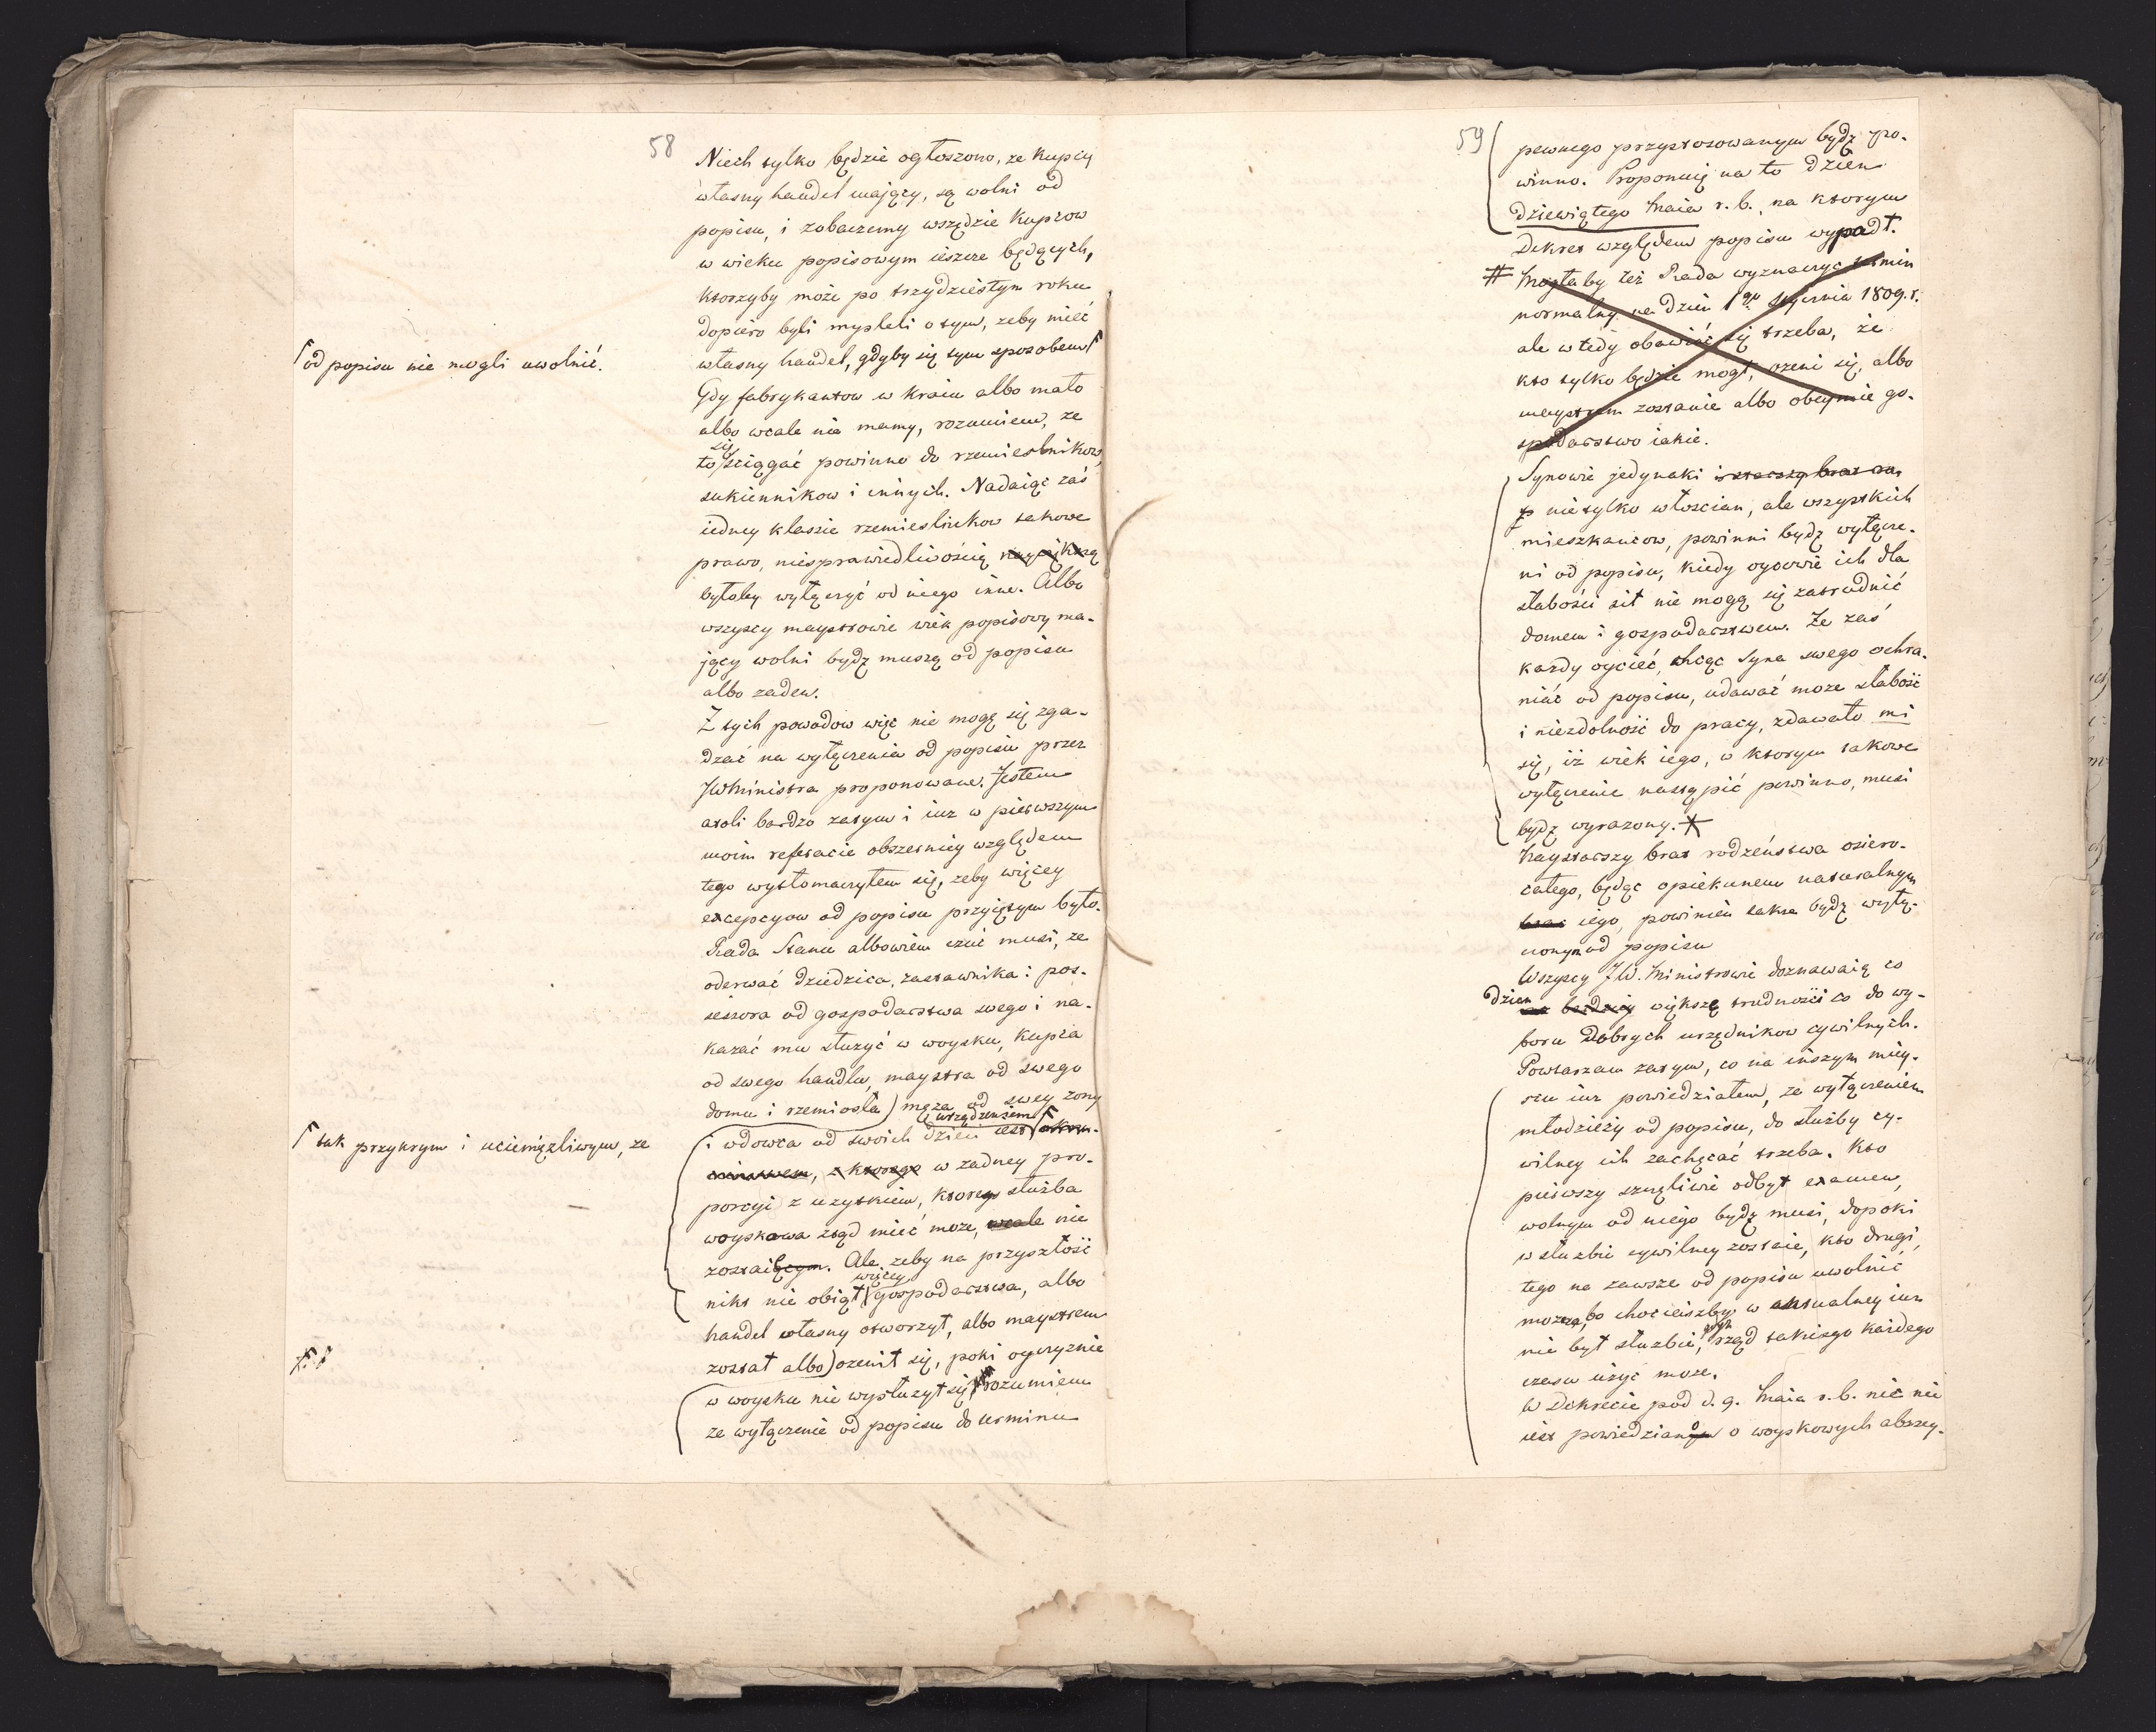 58
Niech tylko będzie ogłoszono, ze kupcy
własny handel mający, są wolni od
popisu, i zobaczemy wszędzie kupcow
w wieku popisowym ieszcze będących,
ktorzyby może po trzydziestym roku
dopiero byli mysleli o tym, zeby mieć
własny handel, gdyby się tym sposobem⌈
⌈od popisu nie mogli uwolnić.
Gdy fabrykantow w kraiu albo mało
albo wcale nie mamy, rozumiem, ze
się
to ściągać powinno do rzemieslnikow,
sukiennikow i innych. Nadaiąc zaś
iedney klassie rzemieslnikow takowe
prawo, niesprawiedliwością naywiększą
byłoby wyłączyć od niego inne. Albo
wszyscy maystrowie wiek popisowy ma-
jący wolni bydź muszą od popisu
albo zaden.
Z tych powodow więc nie mogę się zga-
dzać na wyłączenia od popisu przez
JWMinistra proponowane. Jestem
atoli bardzo zatym i iuz w pierwszym
moim referacie obszerniey względem
tego wytłomaczyłem się, zeby więcey
excepcyow od popisu przyiętym było.
Rada Stanu albowiem czuć musi, ze
oderwać dziedzica, zastawnika i pos-
sessora od gospodarstwa swego i na-
kazać mu służyć w woysku, kupca
od swego handlu, maystra od swego
domu i rzemiosła) męza od swey zony
urządzeniem⌈
i wdowca od swoich dzieci iest okru-
⌈tak przykrym i uciemięzliwym, ze
cieństwem, z ktorego w zadney pro-
porcyi z uzytkiem, ktorego służba
woyskowa ztąd mieć może, wcale nie
zostaiącym. Ale zeby na przyszłość
więcey
nikt nie obiął gospodarstwa, albo
handel własny otworzył, albo maystrem
został albo) ozenił się, poki oyczyznie
w woysku nie wysłuzył się, rozumiem
ze wyłączenie od popisu do terminu
59
pewnego przystosowanym bydź po-
winno. Proponuię na to dzien
dziewiątego Maia r. b., na ktorym
Dekret względem popisu wypadł.
# Mogłaby też Rada wyznaczyc termin
normalny na dzień 1go Stycznia 1809. r.
ale wtedy obawiać się trzeba, że
kto tylko będzie mogł, ozeni się, albo
maystrem zostanie albo obeymie go-
spodarstwo iakie.
Synowie jedynaki i starszy brat
nie tylko włoscian, ale wszystkich
mieszkancow, powinni bydź wyłącze-
ni od popisu, kiedy oycowie ich dla
słabości sił nie mogą się zatrudnić
domem i gospodarstwem. Ze zaś
kazdy oyciec, chcąc syna swego ochra-
niać od popisu, udawać moze słabość
i niezdolność do pracy, zdawało mi
się, iż wiek iego, w ktorym takowe
wyłączenie nastąpić powinno, musi
bydź wyrazony.
Naystarszy brat rodzeństwa osiero-
całego, będąc opiekunem naturalnym
brat iego, powinien takze bydź wyłą-
czonym od popisu
Wszyscy J.W. Ministrowie doznawaią co
dzien
bardziey większą trudności co do wy-
boru dobrych urzędnikow cywilnych.
Powtarzam zatym, co na inszym miey-
scu iuz powiedziałem, ze wyłączeniem
młodzieży od popisu, do służby cy-
wilney ich zachęcać trzeba. Kto
pierwszy szczęśliwie odbył examen,
wolnym od niego bydź musi, dopoki
w służbie cywilney zostaie, kto drugi,
tego na zawsze od popisu uwolnić
można, bo chociażby w aktualney iuz
nie był służbie, rząd takiego kaidego
czasu użyć moze.
W Dekrecie pod d. 9. Maia r. b. nic nie
iest powiedziano o woyskowych abszey-